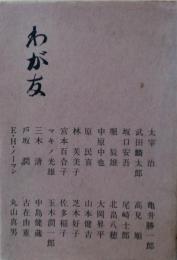 わが友
太宰治 亀井勝一郎
武田麟太郎 高見順
坂口安吾 尾崎士郎
堀辰雄 北畠八穂
中原中也 大岡昇平
原民喜 山本健吉
林芙美子 芝木好子
宮本百合子 佐多稲子
マキノ光雄 玉木潤一郎
三木清 中島健蔵
戸坂潤 古在由重
E・H・ノーマン 丸山真男